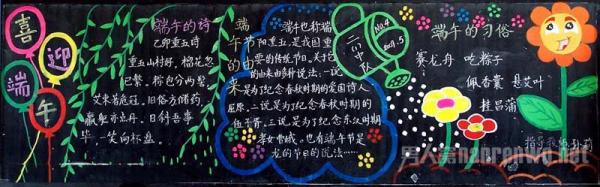 喜
迎
端
午
端午的诗
乙卯重五诗
重五山村好，榴花忽
已繁。粽包分两髻，
艾束著危冠。旧俗方储药，
羸躯亦点丹。日斜吾事
毕，一笑向杯盘。
端午节的由来
端午也称端
阳重五，是我国重
要的传统节日。关于它
的由来由多种说法：一说
是为了纪念春秋时期的爱国诗人
屈原；二说是为了纪念春秋时期的
伍子胥；三说是为了纪念东汉时期
孝女曹娥。也有端午节是
龙的节日的说法……
二(1)中队
No.4
2009.5
端午的习俗
赛龙舟 吃粽子
佩香囊 悬艾叶
挂菖蒲
指导教师:孙莉